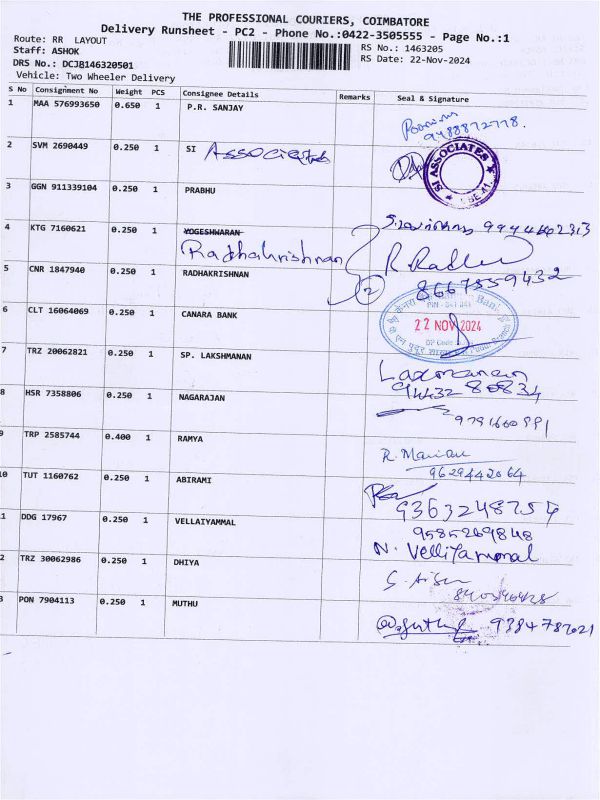 THE PROFESSIONAL COURIERS, COIMBATORE
Delivery Runsheet - PC2 - Phone No.:0422-3505555 - Page No.:1
Route: RR LAYOUT
RS No.: 1463205
Staff: ASHOK
RS Date: 22-Nov-2024
DRS No.: DCJB146320501
Vehicle: Two Wheeler Delivery
S No Consignment No Weight PCS Consignee Details Remarks Seal & Signature
1 MAA 576993650 0.650 1 P.R. SANJAY
9488872778.
2 SVM 2690449 0.250 1 SI Associates
SI ASSOCIATES
3 GGN 911339104 0.250 1 PRABHU
4 KTG 7160621 0.250 1 YOGESHWARAN
Radhakrishnan
5 CNR 1847940 0.250 1 RADHAKRISHNAN 2
8667559432
6 CLT 16064069 0.250 1 CANARA BANK
22 NOV 2024
7 TRZ 20062821 0.250 1 SP. LAKSHMANAN
Laxmanan
8 HSR 7358806 0.250 1 NAGARAJAN
9791660991
9 TRP 2585744 0.400 1 RAMYA
9629442064
10 TUT 1160762 0.250 1 ABIRAMI
9363248754
11 DDG 17967 0.250 1 VELLAIYAMMAL
9585269848
12 TRZ 30062986 0.250 1 DHIYA
13 PON 7904113 0.250 1 MUTHU
9384787021